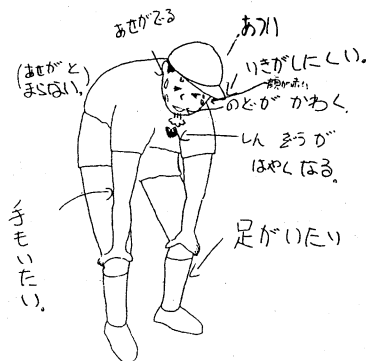 あせがでる
あつい
(あせがと
まらない。)
いきがしにくい。
顔が赤い
のどが かわく。
しんぞうが
はやくなる。
手もいたい。
足がいたい